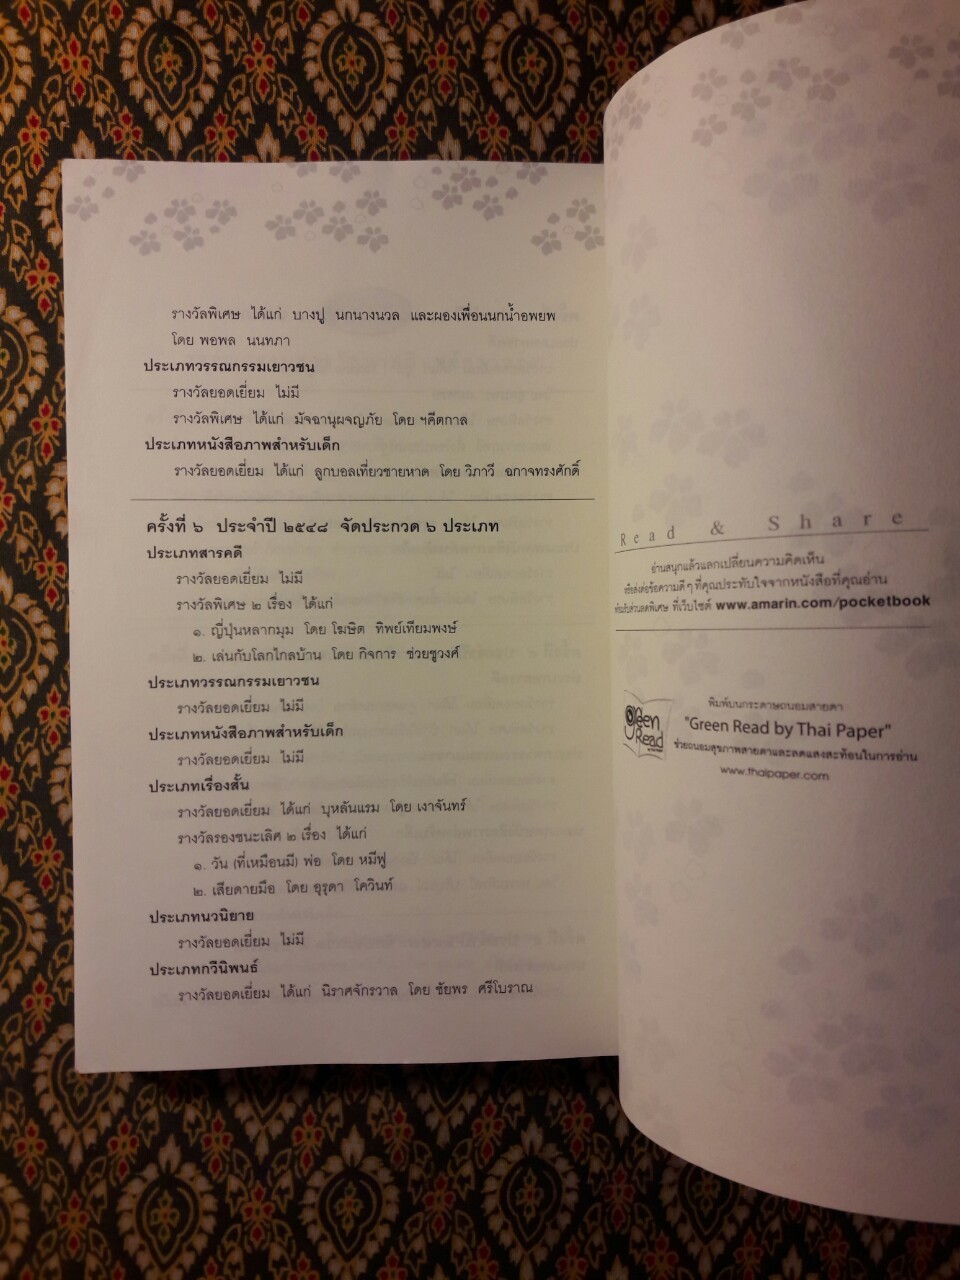 รางวัลพิเศษ ได้แก่ บางปู นกนางนวล และผองเพื่อนนกน้ำอพยพ
โดย พอพล นนทภา
ประเภทวรรณกรรมเยาวชน
รางวัลยอดเยี่ยม ไม่มี
รางวัลพิเศษ ได้แก่ มัจฉานุผจญภัย โดย ฯคีตกาล
ประเภทหนังสือภาพสำหรับเด็ก
รางวัลยอดเยี่ยม ได้แก่ ลูกบอลเที่ยวชายหาด โดย วิภาวี ฉกาจทรงศักดิ์
ครั้งที่ ๖ ประจำปี ๒๕๔๘ จัดประกวด ๖ ประเภท
ประเภทสารคดี
รางวัลยอดเยี่ยม ไม่มี
รางวัลพิเศษ ๒ เรื่อง ได้แก่
๑. ญี่ปุ่นหลากมุม โดย โฆษิต ทิพย์เทียมพงษ์
๒. เล่นกับโลกไกลบ้าน โดย กิจการ ช่วยชูวงศ์
ประเภทวรรณกรรมเยาวชน
รางวัลยอดเยี่ยม ไม่มี
ประเภทหนังสือภาพสำหรับเด็ก
รางวัลยอดเยี่ยม ไม่มี
ประเภทเรื่องสั้น
รางวัลยอดเยี่ยม ได้แก่ บุหลันแรม โดย เงาจันทร์
รางวัลรองชนะเลิศ ๒ เรื่อง ได้แก่
๑. วัน (ที่เหมือนมี) พ่อ โดย หมีฟู
๒. เสียดายมือ โดย อุรุดา โควินท์
ประเภทนวนิยาย
รางวัลยอดเยี่ยม ไม่มี
ประเภทกวีนิพนธ์
รางวัลยอดเยี่ยม ได้แก่ นิราศจักรวาล โดย ชัยพร ศรีโบราณ
Read & Share
อ่านสนุกแล้วแลกเปลี่ยนความคิดเห็น
หรือส่งต่อข้อความดีๆ ที่คุณประทับใจจากหนังสือที่คุณอ่าน
พร้อมรับส่วนลดพิเศษ ที่เว็บไซต์ www.amarin.com/pocketbook
Green Read
พิมพ์บนกระดาษถนอมสายตา
"Green Read by Thai Paper"
ช่วยถนอมสุขภาพสายตาและลดแสงสะท้อนในการอ่าน
www.thaipaper.com